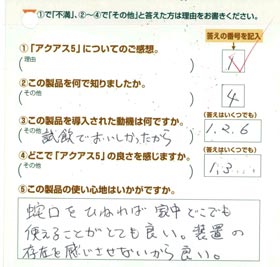 ①で「不満」、②〜④で「その他」と答えた方は理由をお書きください。
答えの番号を記入
①「アクアス5」についてのご感想。
(理由
1
②この製品を何で知りましたか。
(その他
4
③この製品を導入された動機は何ですか。
(答えはいくつでも)
(その他 試飲でおいしかったから
1.2.6
④どこで「アクアス5」の良さを感じますか。
(答えはいくつでも)
(その他
1.3....
⑤この製品の使い心地はいかがですか。
蛇口をひねれば家中どこでも
使えることがとても良い。装置の
存在を感じさせないから良い。